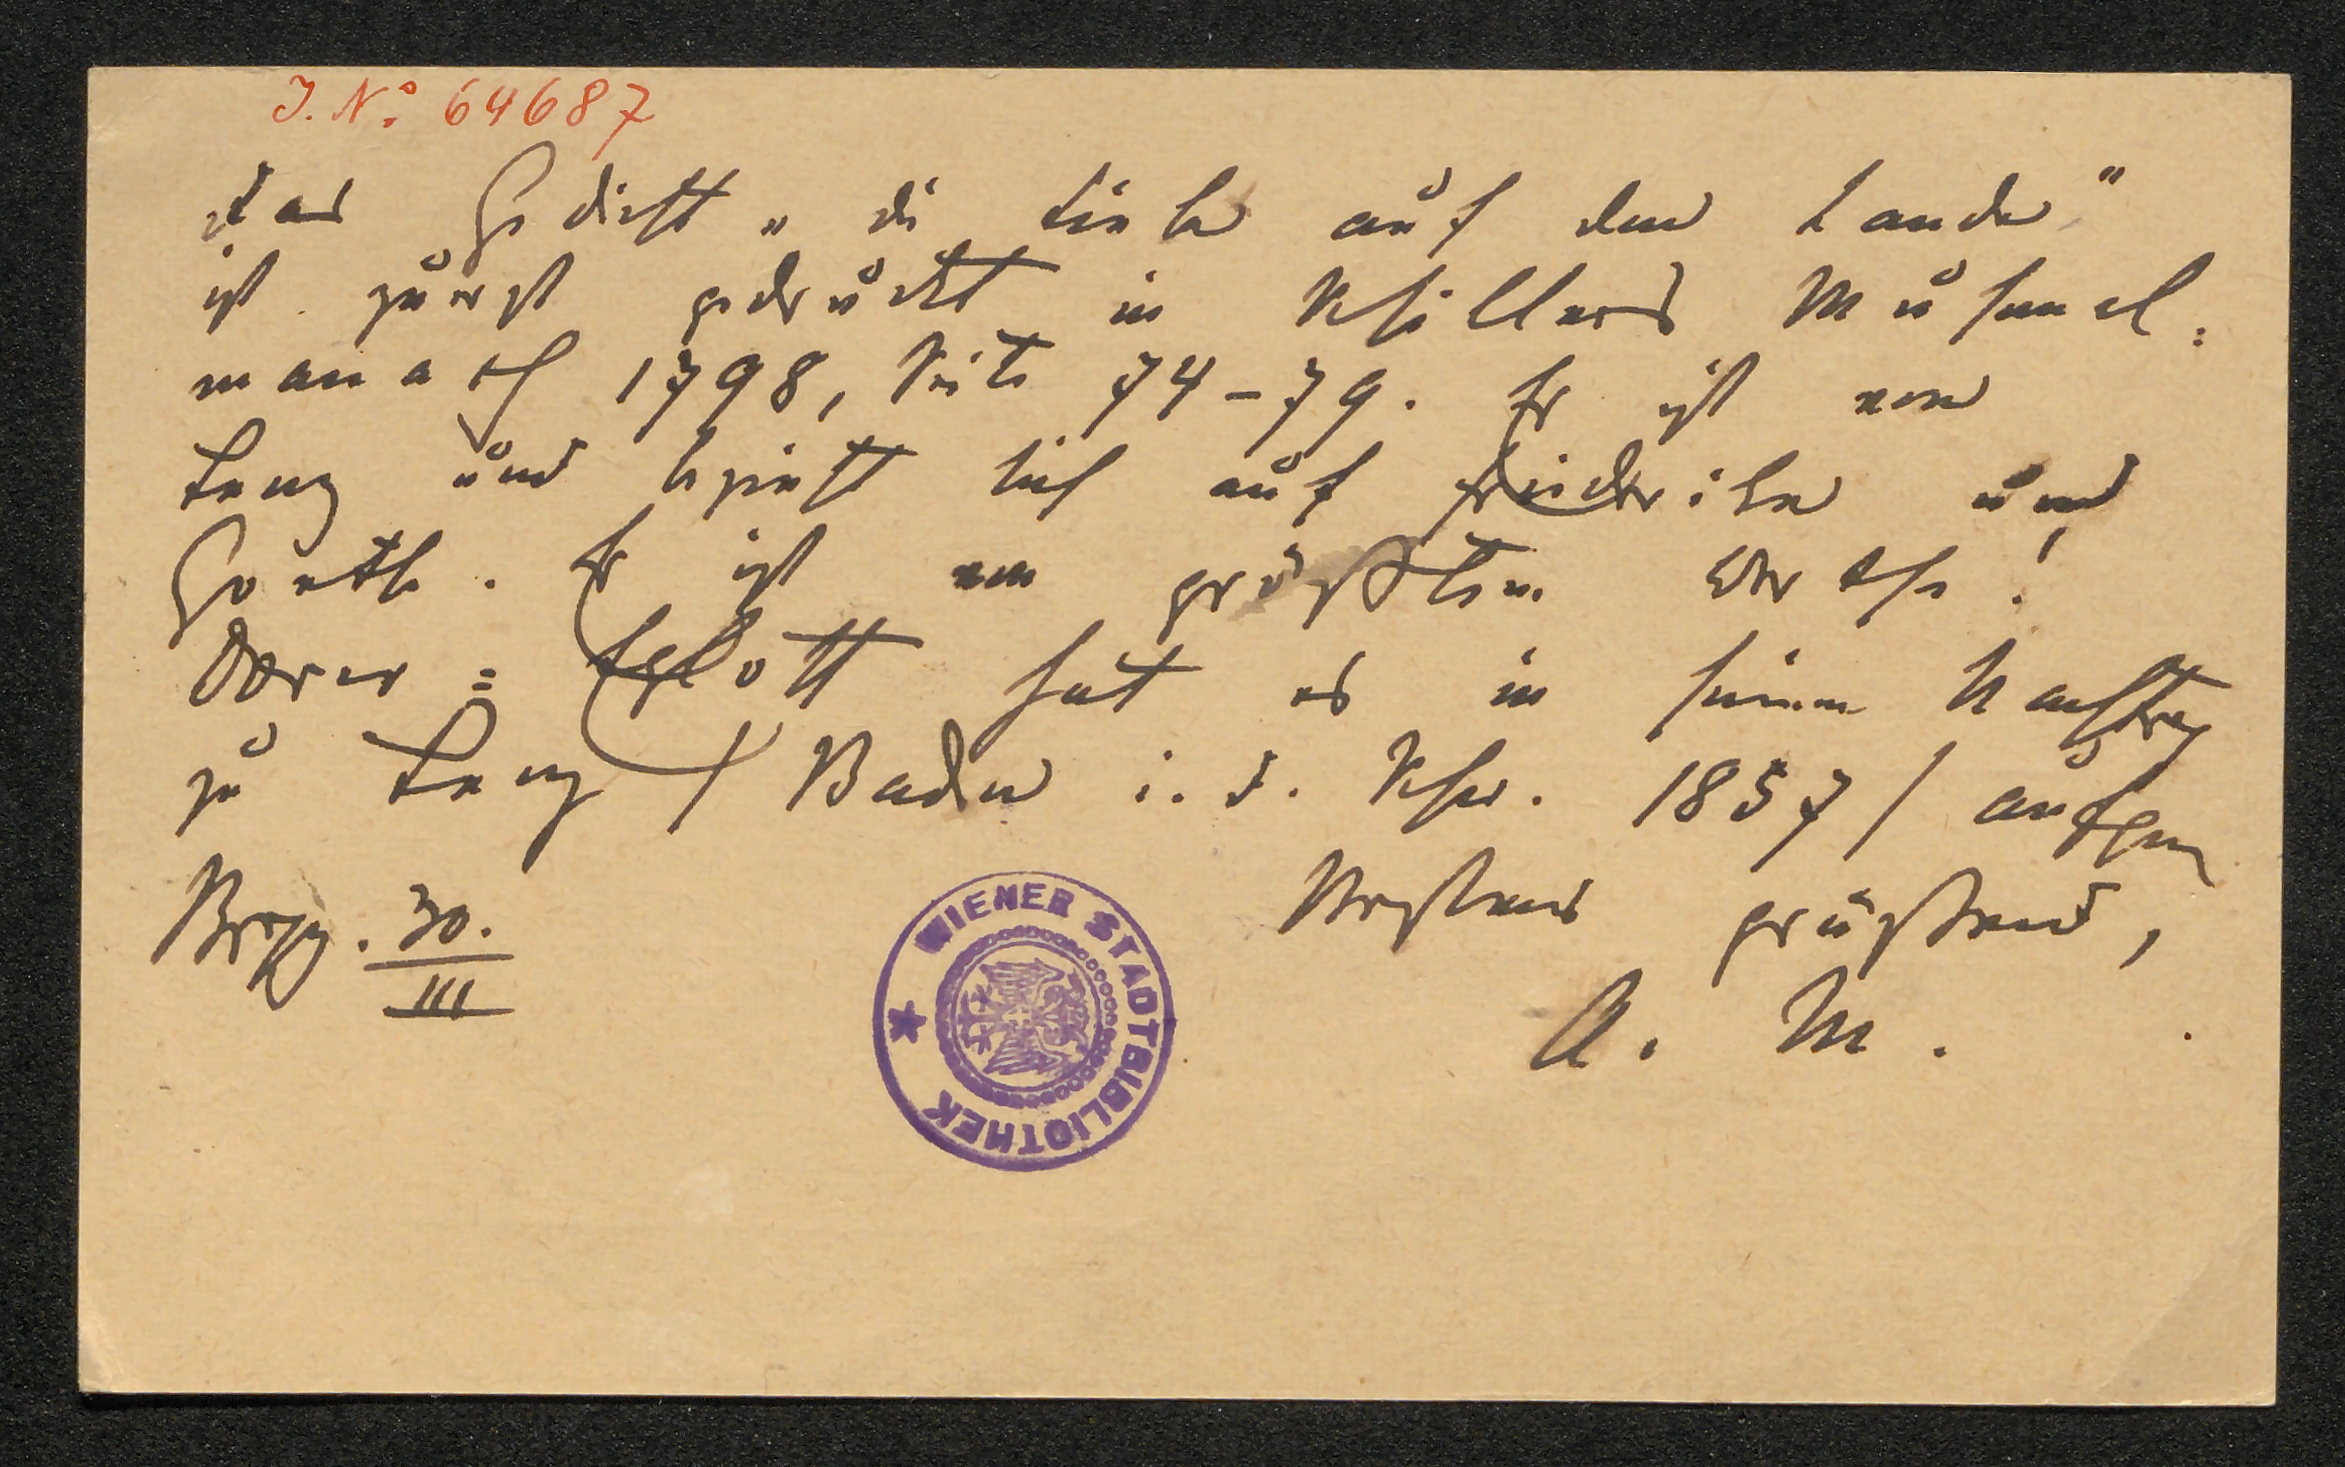 J. N: 64687
Das Gedicht „die Liebe auf dem Lande"
ist zuerst gedruckt in Schillers Musenal=
manach 1798, Seite 74-79. Er ist von
Lenz und bezieht sich auf Friederike und
Goethe. Er ist von größtem Werthe!
Dorer=Egloff hat es in seinem Nachtrag
zu Lenz / Baden i. d. Schw. 1857 / aufgen
Bestens grüßend,
Brgz. 30.
III
A. M.
WIENER STADTBIBLIOTHEK